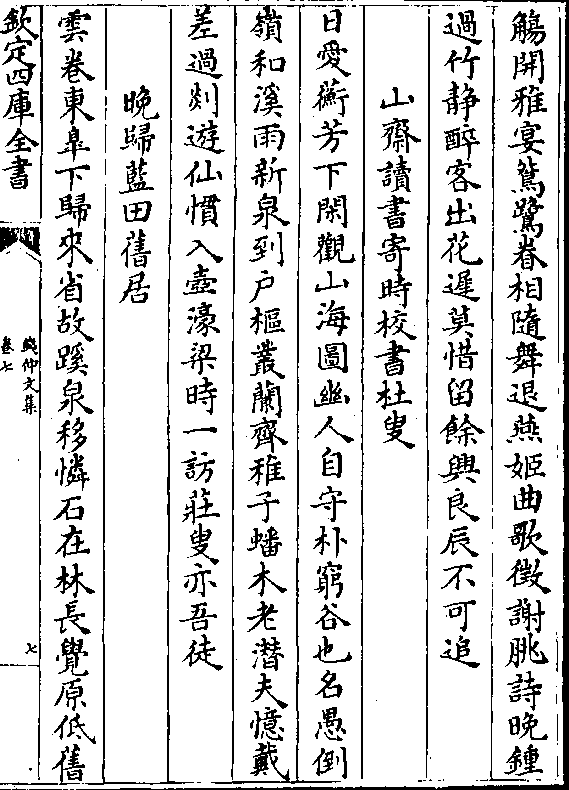 觴開雅宴鴛鷺眷相隨舞退燕姬曲歌徵謝朓詩晚鍾
過竹静醉客出花遲莫惜留餘興良辰不可追
山齋讀書寄時校書杜叟
日愛蘅芳下閑觀山海圖幽人自守朴窮谷也名愚倒
嶺和溪雨新泉到戶樞叢蘭齊稚子蟠木老潜夫憶戴
差過剡遊仙慣入壺濠梁時一訪莊叟亦吾徒
晚歸藍田舊居
雲卷東臯下歸來省故蹊泉移憐石在林長覺原低舊
欽定四庫全書
錢仲文集
卷七
七